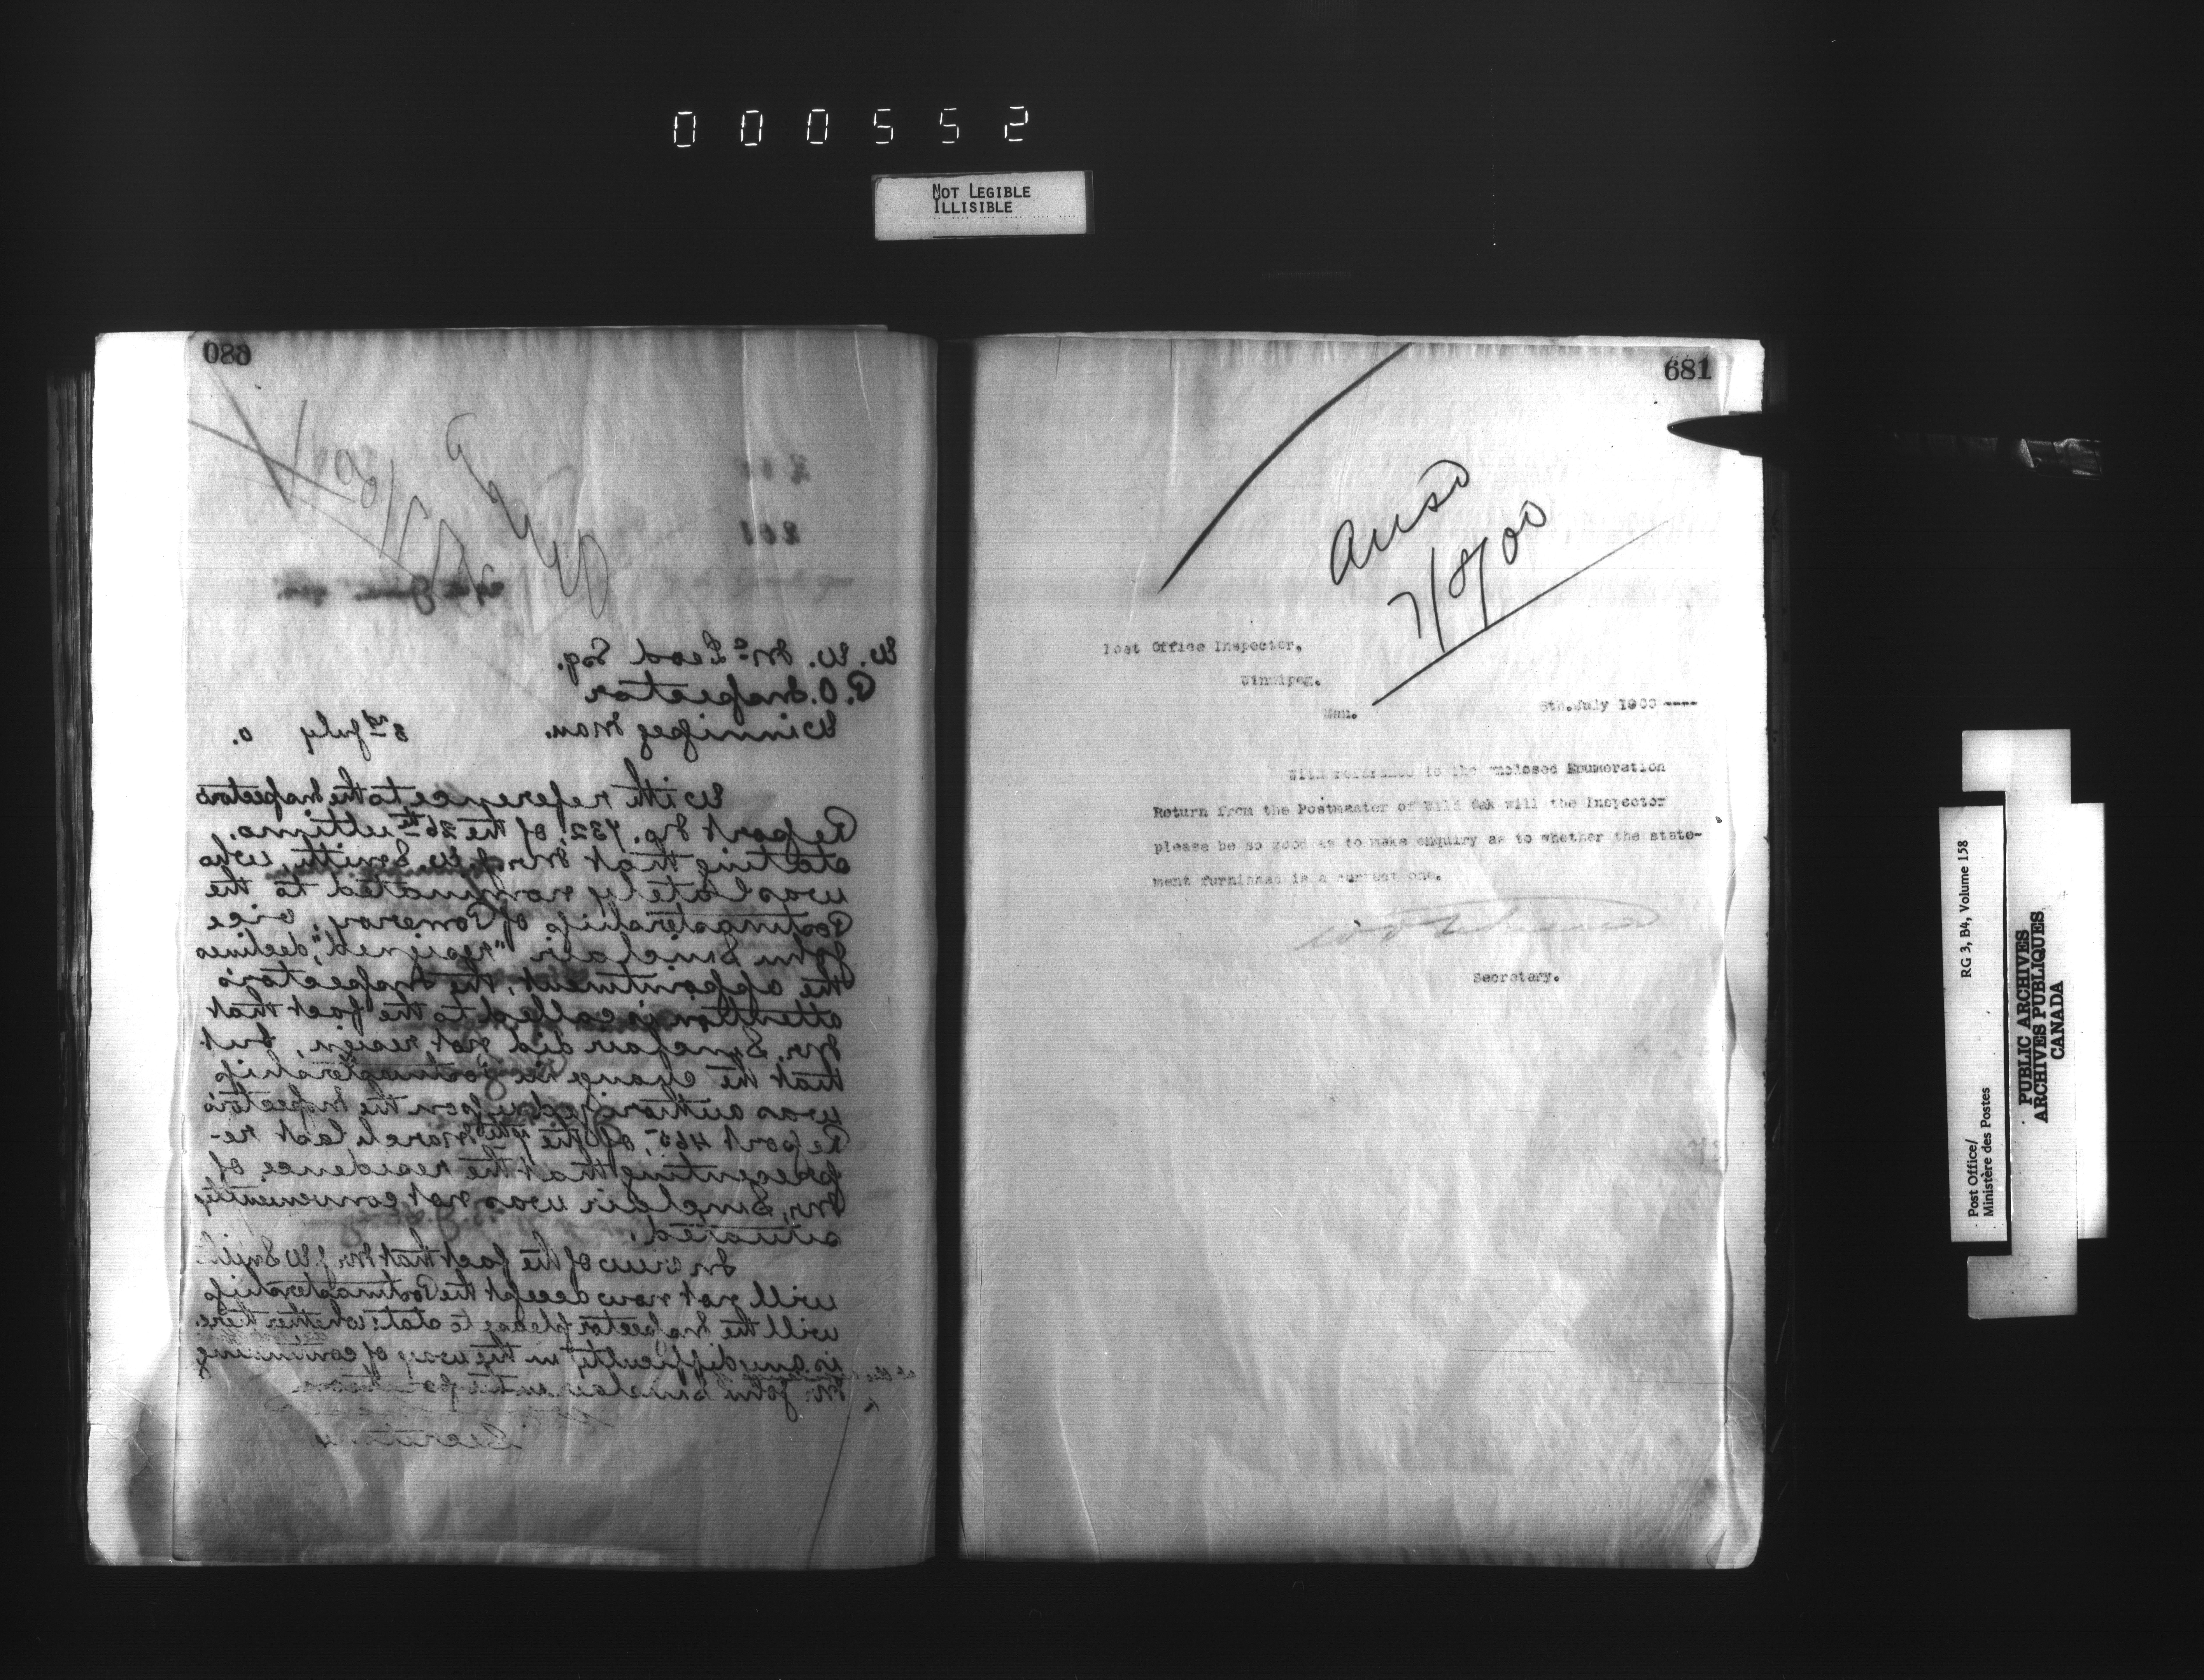 000552
NOT LEGIBLE
ILLISIBLE
680
W. W. McLeod Esq.
P.O. Inspector
Winnipeg Man. 3rd July 0.
With reference to the Inspector's
Report No. 732, of the 26th ultimo.
stating that Mr J. W. Smith, who
was lately nominated to the
Postmastership of Pomeroy, vice
John Sinclair "resigned", declines
the appointment, the Inspector's
attention is called to the fact that
Mr. Sinclair did not resign, but
that the change in Postmastership
was authorized upon the Inspector's
Report 465, of the March last re-
presenting that the residence of
Mr. Sinclair was not conveniently
situated.
In view of the fact that Mr J W Smith
will not now accept the Postmastership
will the Inspector please to state whether there
is any difficulty in the way of continuing
Mr. John Sinclair in the position
Secretary
681
Ansd
7/8/00
Post Office Inspector,
Winnipeg.
Man.
5th. July 1900 ----
With reference to the enclosed Enumeration
Return from the Postmaster of Wild Oak will the Inspector
please be so good as to make enquiry as to whether the state-
ment furnished is a correct one.
Secretary.
Post Office/
Ministère des Postes
RG 3, B4, Volume 158
PUBLIC ARCHIVES
ARCHIVES PUBLIQUES
CANADA